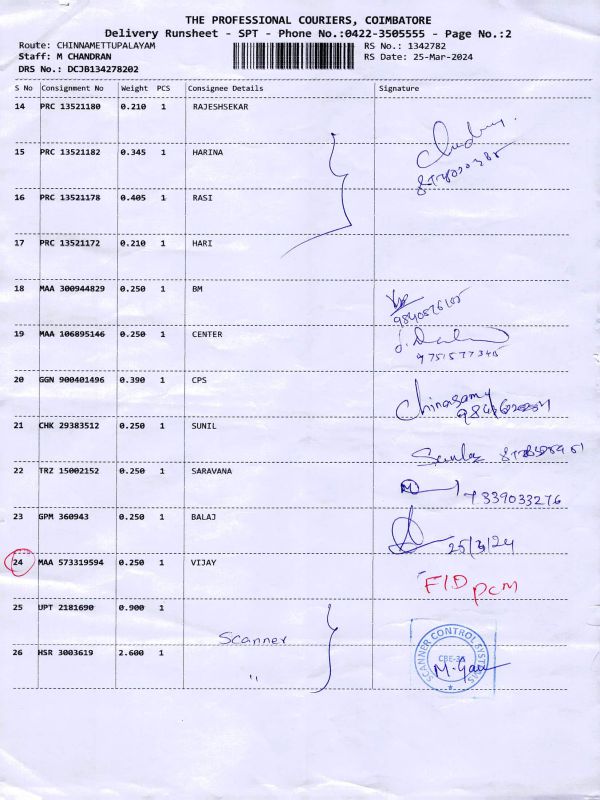 THE PROFESSIONAL COURIERS, COIMBATORE
Delivery Runsheet - SPT - Phone No.:0422-3505555 - Page No.:2
Route: CHINNAMETTUPALAYAM RS No.: 1342782
Staff: M CHANDRAN RS Date: 25-Mar-2024
DRS No.: DCJB134278202
S No Consignment No Weight PCS Consignee Details Signature
14 PRC 13521180 0.210 1 RAJESHSEKAR
15 PRC 13521182 0.345 1 HARINA
16 PRC 13521178 0.405 1 RASI
17 PRC 13521172 0.210 1 HARI
18 MAA 300944829 0.250 1 BM
19 MAA 106895146 0.250 1 CENTER
9751577345
20 GGN 900401496 0.390 1 CPS
Chinasamy
21 CHK 29383512 0.250 1 SUNIL
22 TRZ 15002152 0.250 1 SARAVANA
7339033276
23 GPM 360943 0.250 1 BALAJ
25/3/24
24 MAA 573319594 0.250 1 VIJAY F/D PCM
25 UPT 2181690 0.900 1 Scanner
26 HSR 3003619 2.600 1 "
SCANNER CONTROL SYSTEMS